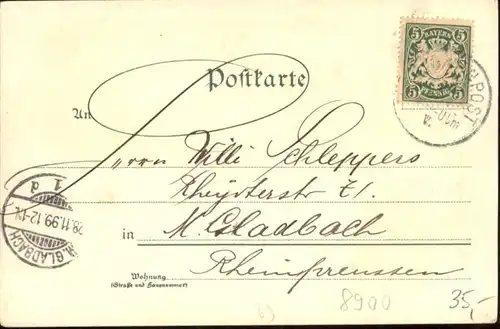 BAYERN
5 5
5 PFENNIG 5
POST
Postkarte
An
Herrn Willi Schleppers
Rheydterstr 71.
in M. Gladbach
Rheinpreussen
GLADBACH
28.11.99.12-1N.
1 d
Wohnung
(Straße und Hausnummer)
8900
35,-